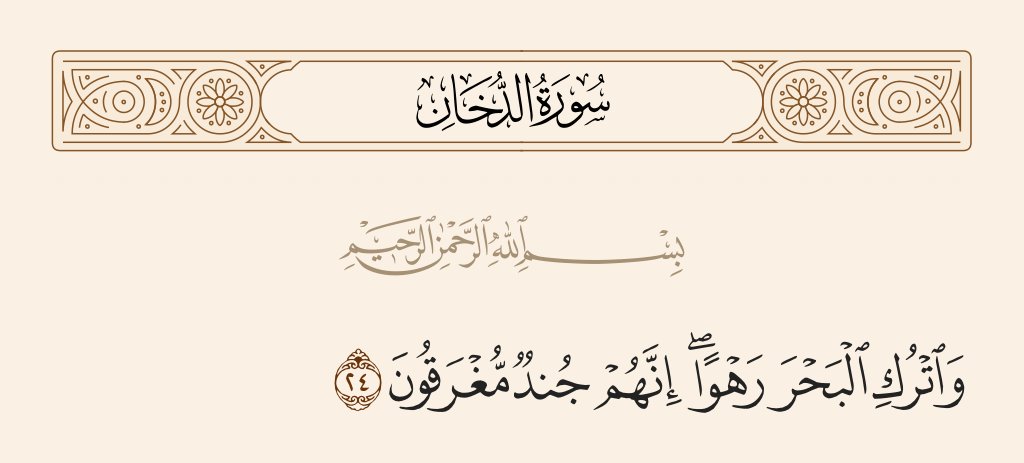 سُورَةُ الدُّخَانِ
بِسْمِ ٱللَّهِ ٱلرَّحْمَٰنِ ٱلرَّحِيمِ
وَٱتْرُكِ ٱلْبَحْرَ رَهْوًا ۖ إِنَّهُمْ جُندٌ مُّغْرَقُونَ ٢٤